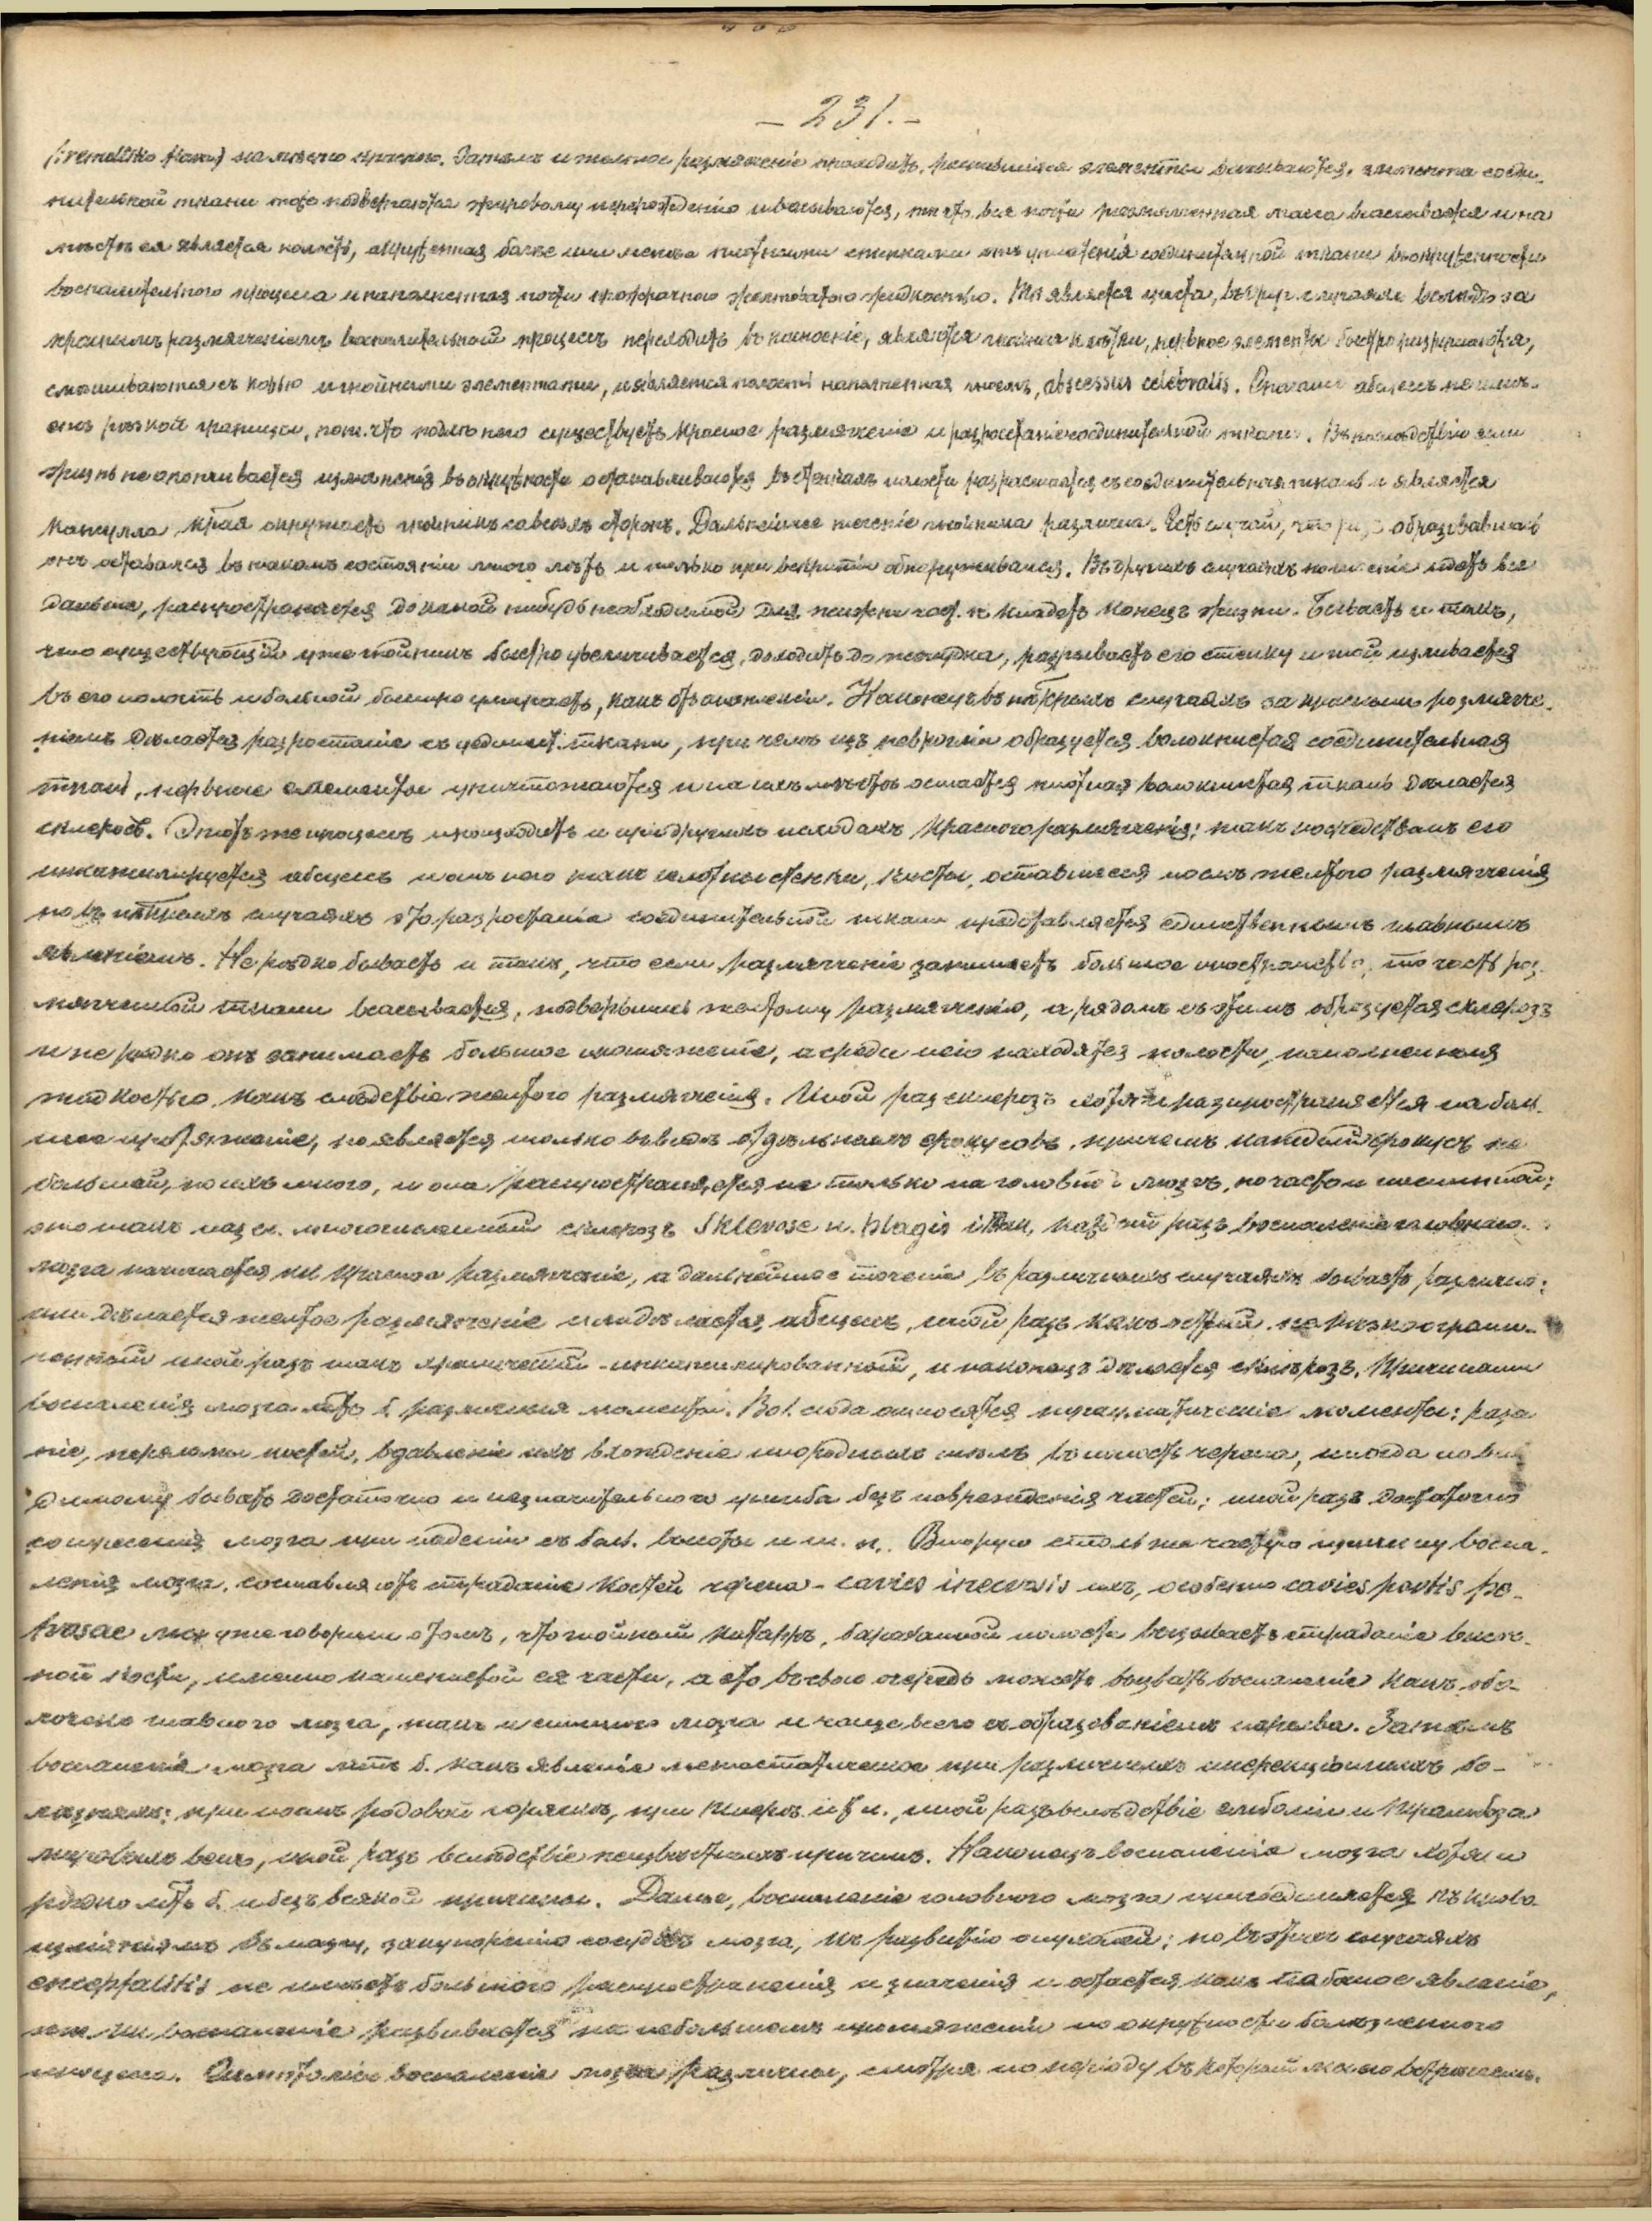 – 231. –
на мѣсто краснаго. Затѣмъ и желтое размягченіе проходитъ, распавшіеся элементы всасываются, элементы соеди-
нительной ткани тоже подвергаются жировому перерожденію и всасываются, такъ что вся почти размягченная масса всасывается и на
мѣстѣ ея является полость, окруженная болѣе или менѣе плотными стѣнками отъ уплотенія соединительной ткани въ окруженности
воспалительнаго процесса и наполненная почти прозрачною желтоватою жидкостью. Т. е. является циста, въ друг. случаяхъ вслѣдъ за
краснымъ размягченіемъ воспалительный процессъ переходитъ въ нагноеніе, являются гнойныя клѣтки, нервные элементы быстро разрушаются,
смѣшиваются съ кровью и гнойными элементами, и является полость наполненная гноемъ, abscessus celebralis. Вначалѣ абсцессъ не имѣ-
етъ рѣзкой границы, пот. что подлѣ него существуетъ красное размягченіе и разростаніе соединительной ткани. Въ послѣдствіи если
жизнь не оканчивается измѣненія въ окружности останавливаются въ стѣнкахъ полости разрастается соединительная ткань и является
капсулла, которая окружаетъ гнойникъ со всѣхъ сторонъ. Дальнейшее теченіе гнойника различно. Есть случаи, что разъ образовавшись
онъ оставался въ такомъ состояніи много лѣтъ и только при вскрытіи обнаруживался. Въ другихъ случаяхъ нагноеніе идетъ все
дальше, распространяется до какой нибудь необходимой для жизни част. и кладетъ конецъ жизни. Бываетъ и такъ,
что существующій уже гнойникъ быстро увеличивается, доходитъ до желудка, разрываетъ его стѣнку и гной изливается
въ его полость и больной быстро умираетъ, какъ отъ апоплексіи. Наконецъ въ нѣкотрыхъ случаяхъ за краснымъ размягче-
ніемъ дѣлается разростаніе соединит. ткани, при чемъ изъ невроглiи образуется волокнистая соединительная
ткань, нервные элементы уничтожаются и на ихъ мѣстѣ остается плотная волокнистая ткань дѣлается
склерозъ. Этотъ же процессъ происходитъ и при другихъ исходахъ краснаго размягченія; такъ посредствомъ его
инкапсулируется абсцессъ и отъ него также плотны стѣнки, кисты, оставшіеся послѣ желтаго размягченія
но въ нѣкотрыхъ случаяхъ это разростаніе соединительной ткани представляется единственнымъ главнымъ
явленіемъ. Не рѣдко бываетъ и такъ, что если размягченіе занимаетъ большое пространство, то часть раз-
мягченной ткани всасывается, подвергшись желтому размягченію, а рядомъ съ этимъ образуется склерозъ
и не рѣдко онъ занимаетъ большое протяженіе, а среди него находятся полости, наполненныя
жидкостью, какъ слѣдствіе желтаго размягченія. Иной раз склерозъ хотя и разпространяется на боль-
шое протяженіе, но является только въ видѣ отдѣльныхъ фокусовъ, причемъ каждый фокусъ не
большой, но ихъ много, и она распространяется не только на головной мозгъ, но часто и спинной;
это такъ наз. многочисленный склерозъ Sklerose каждый разъ воспаленіе головнаго
мозга начинается какъ красное размягченіе, а дальнейшее теченіе въ различныхъ случаяхъ бываетъ различно:
или дѣлается желтое размягченіе или дѣлается абсцессъ, иной разъ какъ острый, не рѣзко ограни-
ченный иной разъ какъ хроническій – инкапсулированный, и наконецъ дѣлается склерозъ. Причинами
воспаленія мозга мгтъ б. различные моменты. Во 1. сюда относятся травматическіе моменты: ране-
ніе, переломы костей, вдавленіе ихъ вхожденіе инородныхъ тѣлъ въ полость черепа, иногда по ви-
димому бываетъ достаточно и незначительнаго ушиба безъ поврежденія частей; иной разъ достаточно
сотрясенія мозга при паденіи съ больш. высоты и т. п. Вторую столь же частую причину воспа-
ленія мозга, составляютъ страданіе костей черепа – caries i necrosis ихъ, особенно caries partis pe-
trosae мы уже говорили о томъ, что гнойный катарръ барабанной полости вызываетъ страданіе височ-
ной кости, именно каменистой ея части, а это въ свою очередь можетъ вызвать воспаленіе какъ обо-
лочекъ главнаго мозга, такъ и самаго мозга и чаще всего съ образованіемъ нарыва. Затѣмъ
воспаленіе мозга мгтъ б. какъ явленіе метастатическое при различныхъ инфекціонныхъ бо-
лѣзняхъ: при послѣ родовой горячкѣ, при тифѣ и т. п., иной разъ вслѣдствіе эмболіи и тромбоза
мозговыхъ венъ, иной разъ вслѣдствіе неизвѣстныхъ причинъ. Наконецъ воспаленіе мозга хотя и
рѣдко мгтъ б. и безъ всякой причины. Далѣе, воспаленіе головнаго мозга присоединяется къ крово-
изліяніямъ въ мозгу, закупоренію сосудовъ мозга, къ развитію опухолей; но въ этихъ случаяхъ
encephalitis не имѣетъ большого распространенія и значенія и остается какъ побочное явленіе,
воспаленіе развивается на небольшомъ протяженіи по окружности болѣзненнаго
процесса. Симптомы воспаленія мозга различны, смотря по періоду въ который можно встрѣтить.